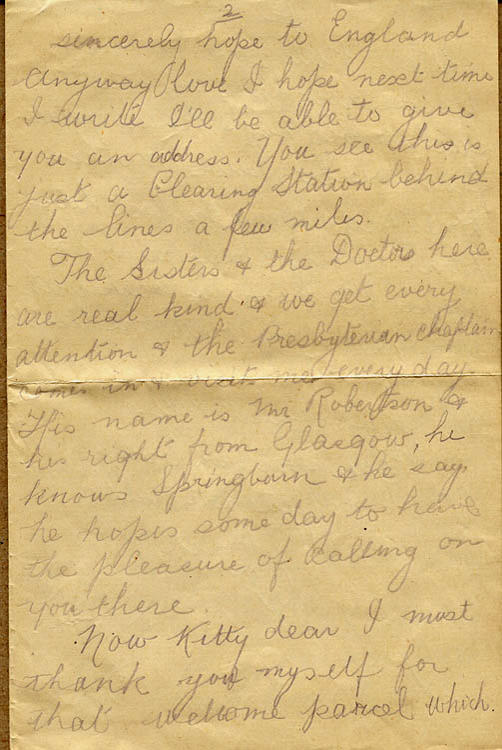 2
sincerely hope to England
Anyway love I hope next time
I write I'll be able to give
you an address. You see this is
just a Clearing Station behind
the lines a few miles.
The Sisters & the Doctors here
are real kind & we get every
attention & the Presbyterian Chaplain
comes in & visits me every day.
His name is Mr Robertson &
his right from Glasgow, he
knows Springburn & he says
he hopes some day to have
the pleasure of calling on
you there.
Now Kitty dear I must
thank you myself for
that welcome parcel which.